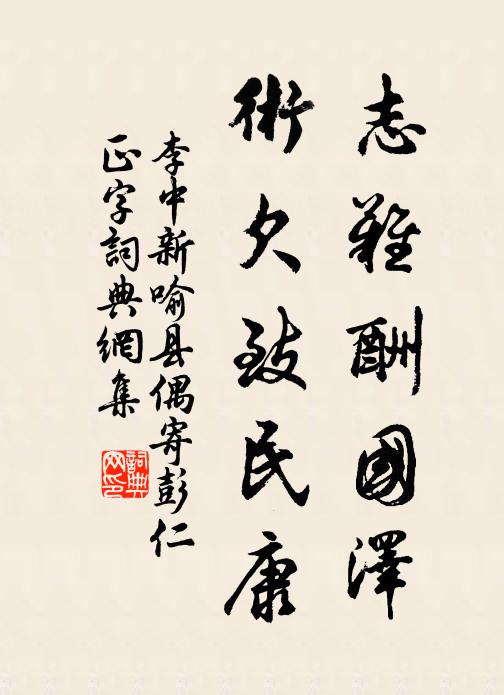 志難酬國澤
術欠致民康
李中新喻县偶寄彭仁
正字詞典網集
詞典網印